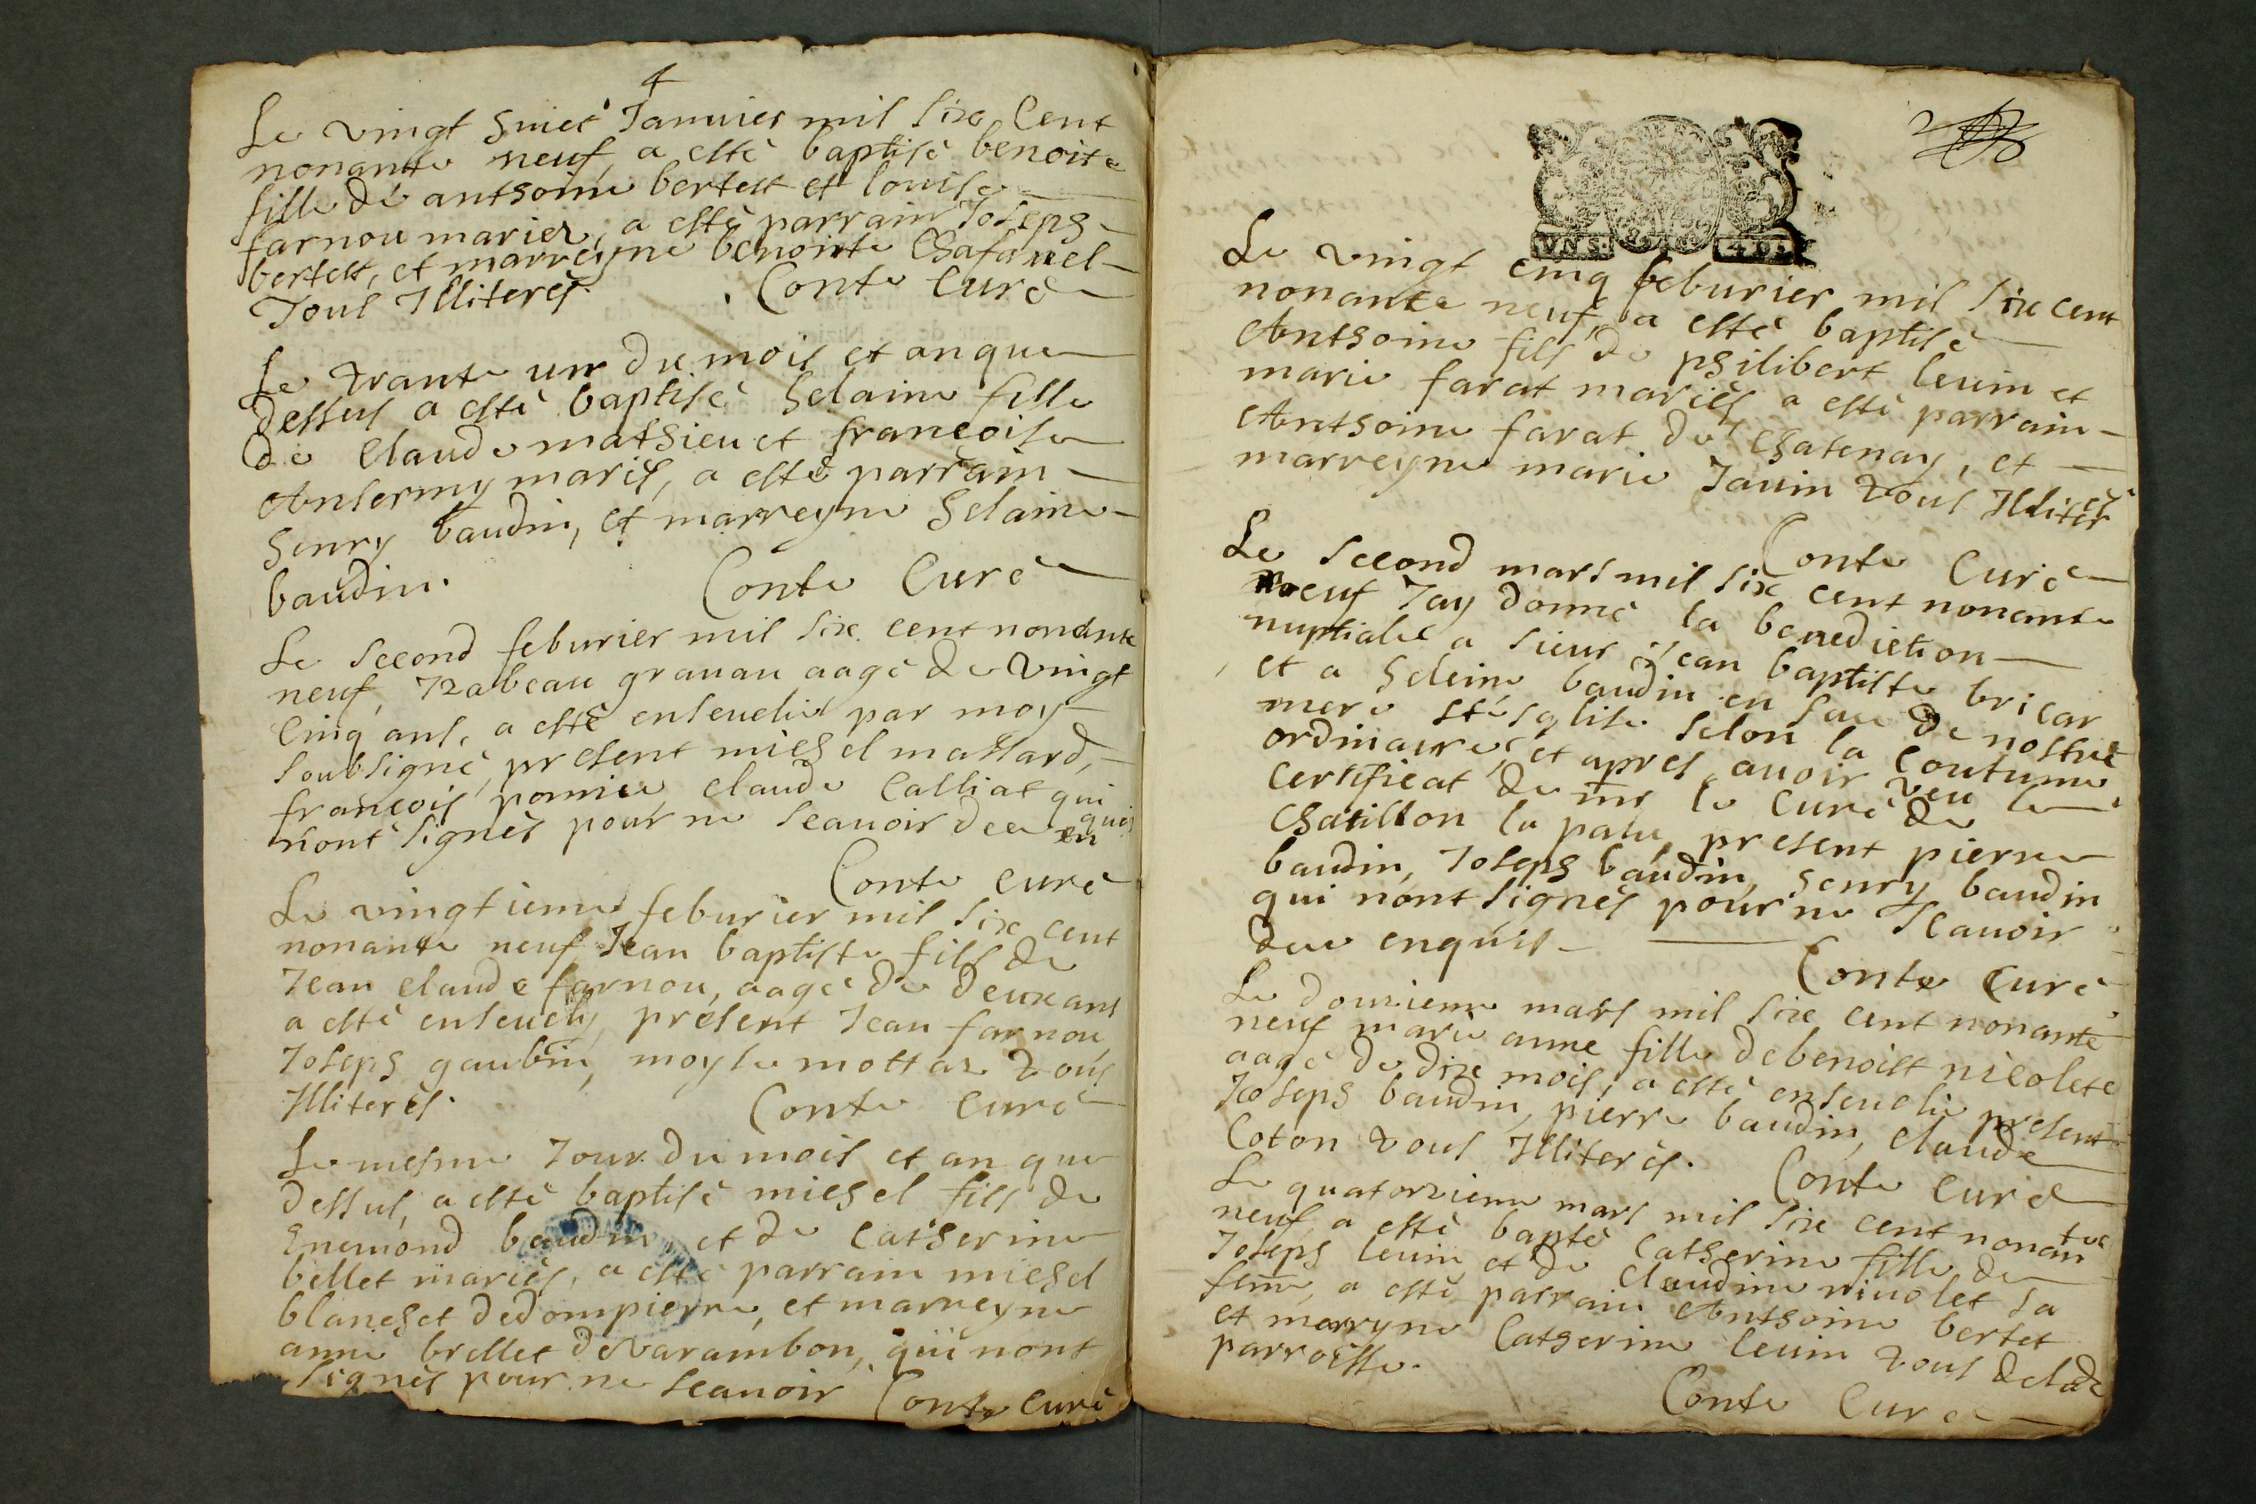 4
Le vingt huict Januier mil six cent
nonante neuf, a esté baptisé benoite
fille de anthoine bertest et louise
farnou mariez, a esté parrain Joseph
bertest, et marreyne benoiste Chafanel
Tous Illiterés. Conte Curé
Le trante un du mois et an que
dessus a esté baptisé helaine fille
de Claude mathieu et francoise
Ansermy mariés, a esté parrain
henry baudin, et marreyne helaine
baudin. Conte Curé
Le second feburier mil six cent nonante
neuf, Izabeau grauau aagé de vingt
Cinq ans, a esté enseuelie par moy
soubsigné, present michel massard,
francois pomier, claude Calliat qui
n'ont signés pour ne scauoir dee enquis
Conte curé
Le vingtieme feburier mil six cent
nonante neuf Jean baptiste fils de
Jean claude farnou, aagé de deux ans
a esté enseuely, present Jean farnou
Joseph gaubin, moyse mottaz tous
Illiterés. Conte curé
Le mesme Jour du mois et an que
dessus, a esté baptisé michel fils de
Enemond baudin, et de Catherine
bellet mariés, a esté parrain michel
blanchet dedompierre, et marreyne
anne brellet devarambon, qui nont
signés pour ne scauoir Conte curé
2
VN S. 4 D.
Le vingt cinq feburier mil six cent
nonante neuf, a esté baptisé
Anthoine fils de philibert leuin et
marie farat mariés, a esté parrain
Anthoine farat de Chatenay, et
marreyne marie Jauin tous Illiterés
Conte Curé
Le second mars mil six cent nonante
neuf Jay donné la benediction
nuptiale a sieur jean baptiste bricar
et a heleine baudin en face de nostre
mere ste esglise selon la coutume
ordinaire, et apres auoir veu le
certificat de mr le Curé de
Chatillon la palu, present pierre
baudin, Joseph baudin, henry baudin
qui nont signés pour ne scauoir
dee enquis Conte Curé
Le douzieme mars mil six cent nonante
neuf marie anne fille debenoist nicolete
aagé de dix mois, a esté enseuelie present
Joseph baudin, pierre baudin, claude
Coton tous Illiterés. Conte curé
Le quatorzieme mars mil six cent nonante
neuf a esté bapté catherine fille de
Joseph leuin et de claudine niuolet sa
feme, a esté parrain Anthoine bertet
et marryne Catherine leuin tous delade
parroisse. Conte Curé